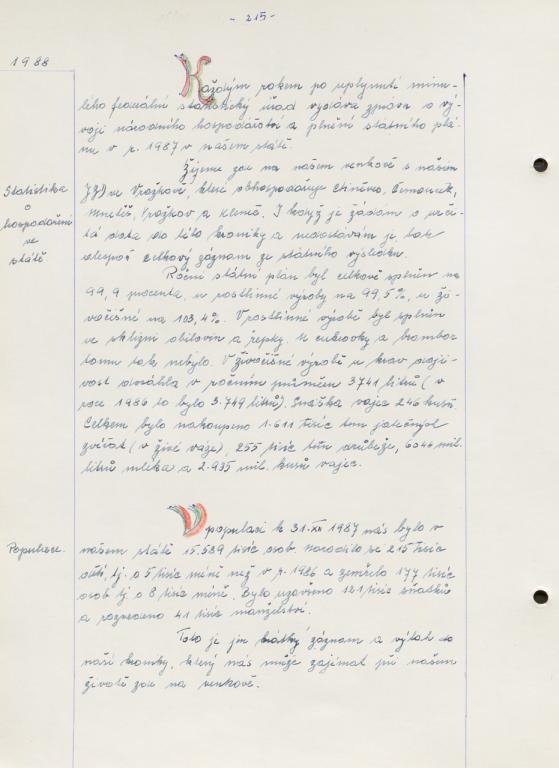 - 215 -
1988
Každým rokem po uplynutí minu-
lého federální statistický úřad vydává zprávu o vý-
voji národního hospodářství a plnění státního plá-
nu v r. 1987 v našem státě.
Statistika
o
hospodaření
ve
státě
Žijeme zde na našem venkově s naším
JZD ve Vražkově, které obhospodařuje Ctiněves, Černouček,
Mnetěš, Vražkov a Kleneč. I když je žádám o urči-
tá data do této kroniky a nedostávám je, tak
alespoň celkový záznam ze státního výsledku.
Roční státní plán byl celkově splněn na
99,9 procenta, u rostlinné výroby na 99,5%, u ži-
vočišné na 103,4%. V rostlinné výrobě byl splněn
ve sklizni obilovin a řepky. U cukrovky a brambor
tomu tak nebylo. V živočišné výrobě u krav doji-
vost dosáhla v ročním průměru 3741 litrů (v
roce 1986 to bylo 3.749 litrů). Snáška vajec 246 kusů
Celkem bylo nakoupeno 1.611 tisíc tun jatečných
zvířat (v živé váze), 255 tisíc tun drůbeže, 6044 mil.
litrů mléka a 2.935 mil. kusů vajec.
Populace.
V populaci k 31. XII 1987 nás bylo v
našem státě 15.589 tisíc osob. Narodilo se 215 tisíc
dětí, tj. o 5 tisíc méně než v r. 1986 a zemřelo 177 tisíc
osob tj o 8 tisíc méně. Bylo uzavřeno 121 tisíc sňatků
a rozvedeno 41 tisíc manželství.
Toto je jen krátký záznam a výtah do
naší kroniky, který nás může zajímat při našem
životě zde na venkově.